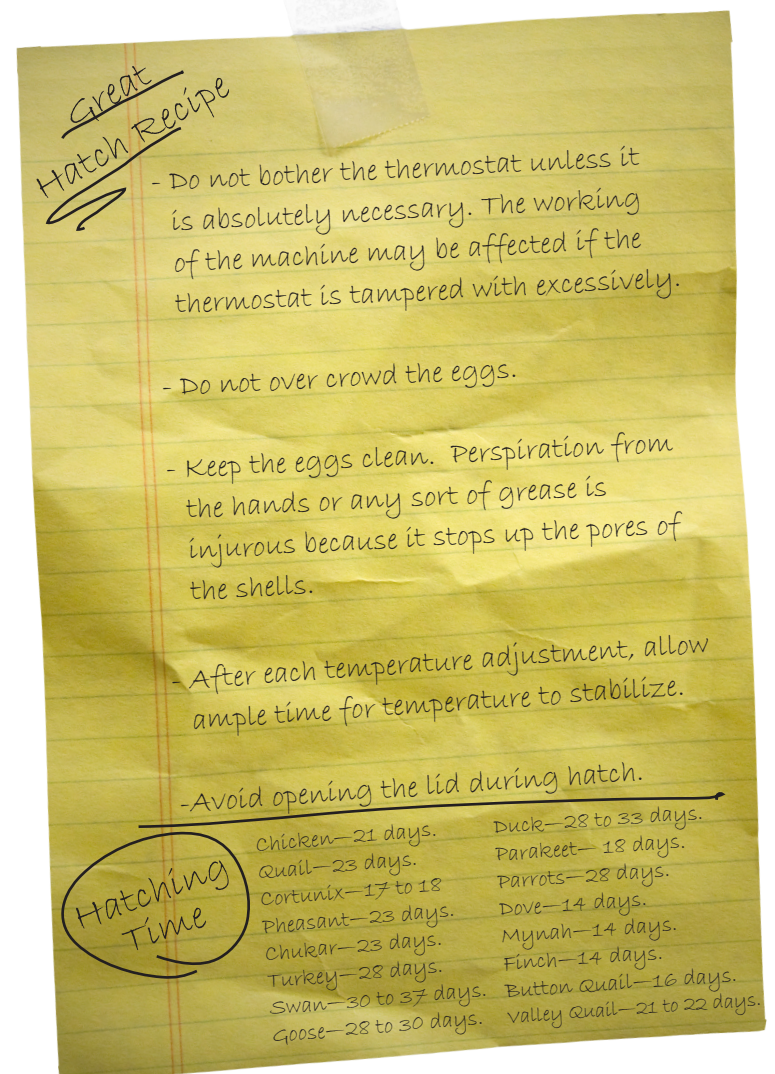 Great
Hatch Recipe
- Do not bother the thermostat unless it
is absolutely necessary. The working
of the machine may be affected if the
thermostat is tampered with excessively.
- Do not over crowd the eggs.
- Keep the eggs clean. Perspiration from
the hands or any sort of grease is
injurous because it stops up the pores of
the shells.
- After each temperature adjustment, allow
ample time for temperature to stabilize.
-Avoid opening the lid during hatch.
Hatching
Time
Chicken—21 days.
Quail—23 days.
Cortunix—17 to 18
Pheasant—23 days.
Chukar—23 days.
Turkey—28 days.
Swan—30 to 37 days.
Goose—28 to 30 days.
Duck—28 to 33 days.
Parakeet— 18 days.
Parrots—28 days.
Dove—14 days.
Mynah—14 days.
Finch—14 days.
Button Quail—16 days.
Valley Quail—21 to 22 days.